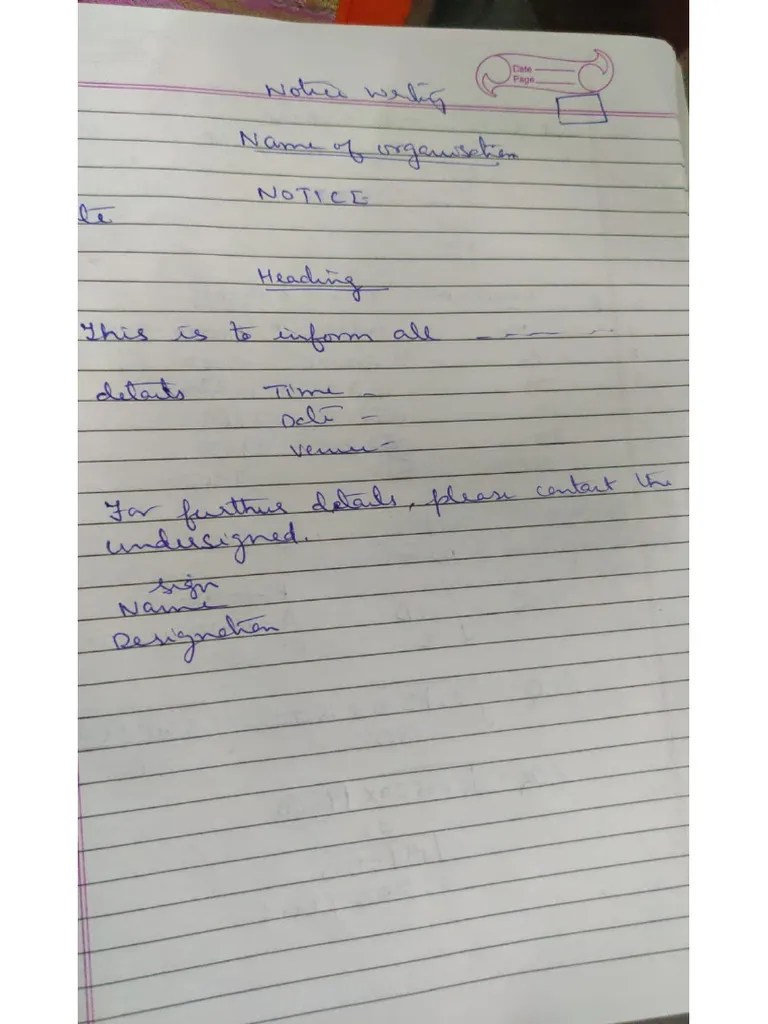 Date
Page
Notice writing
Name of organisation
NOTICE
te
Heading
This is to inform all ─ ─ ─ ─
details Time -
Date -
Venue -
For further details, please contact the
undersigned.
sign
Name
Designation